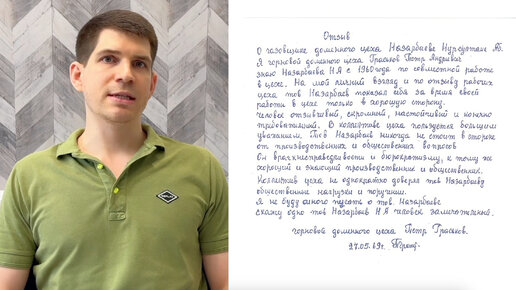 Отзыв
О газовщике доменного цеха Назарбаеве Нурсултане Аб.
Я горновой доменного цеха Грасков Петр Андреевич
знаю Назарбаева Н.А с 1960 года по совместной работе
в цехе. На мой личный взгляд и по отзыву рабочих
цеха тов Назарбаев показал себя за время своей
работы в цехе только в хорошую сторону.
Человек отзывчивый, скромный, настойчивый и конечно
требовательный. В коллективе цеха пользуется большим
уважением. Тов Назарбаев никогда не стоит в стороне
от производственных и общественных вопросов
Он враг несправедливости и бюрократизму, к тому же
хороший и знающий производственник и общественник.
Коллектив цеха не однократно доверял тов Назарбаеву
общественные нагрузки и поручения.
Я не буду много писать о тов. Назарбаеве
скажу одно тов Назарбаев Н А человек замечательный.
горновой доменного цеха Петр Грасков.
27.05.69г.